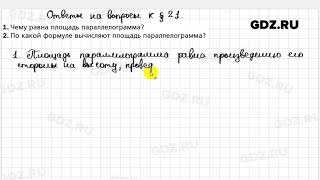 Ответы на вопросы к § 21.
GDZ.RU
1. Чему равна площадь параллелограмма?
2. По какой формуле вычисляют площадь параллелограмма?
1. Площадь параллелограмма равна произведению его
стороны на высоту, провед